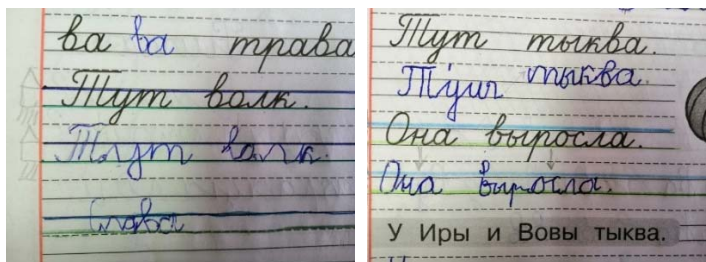 ва ва трава
Тут волк.
Тлут валк.
Слава
Тут тыква.
Туит тыква.
Она выросла.
Она выросла.
У Иры и Вовы тыква.